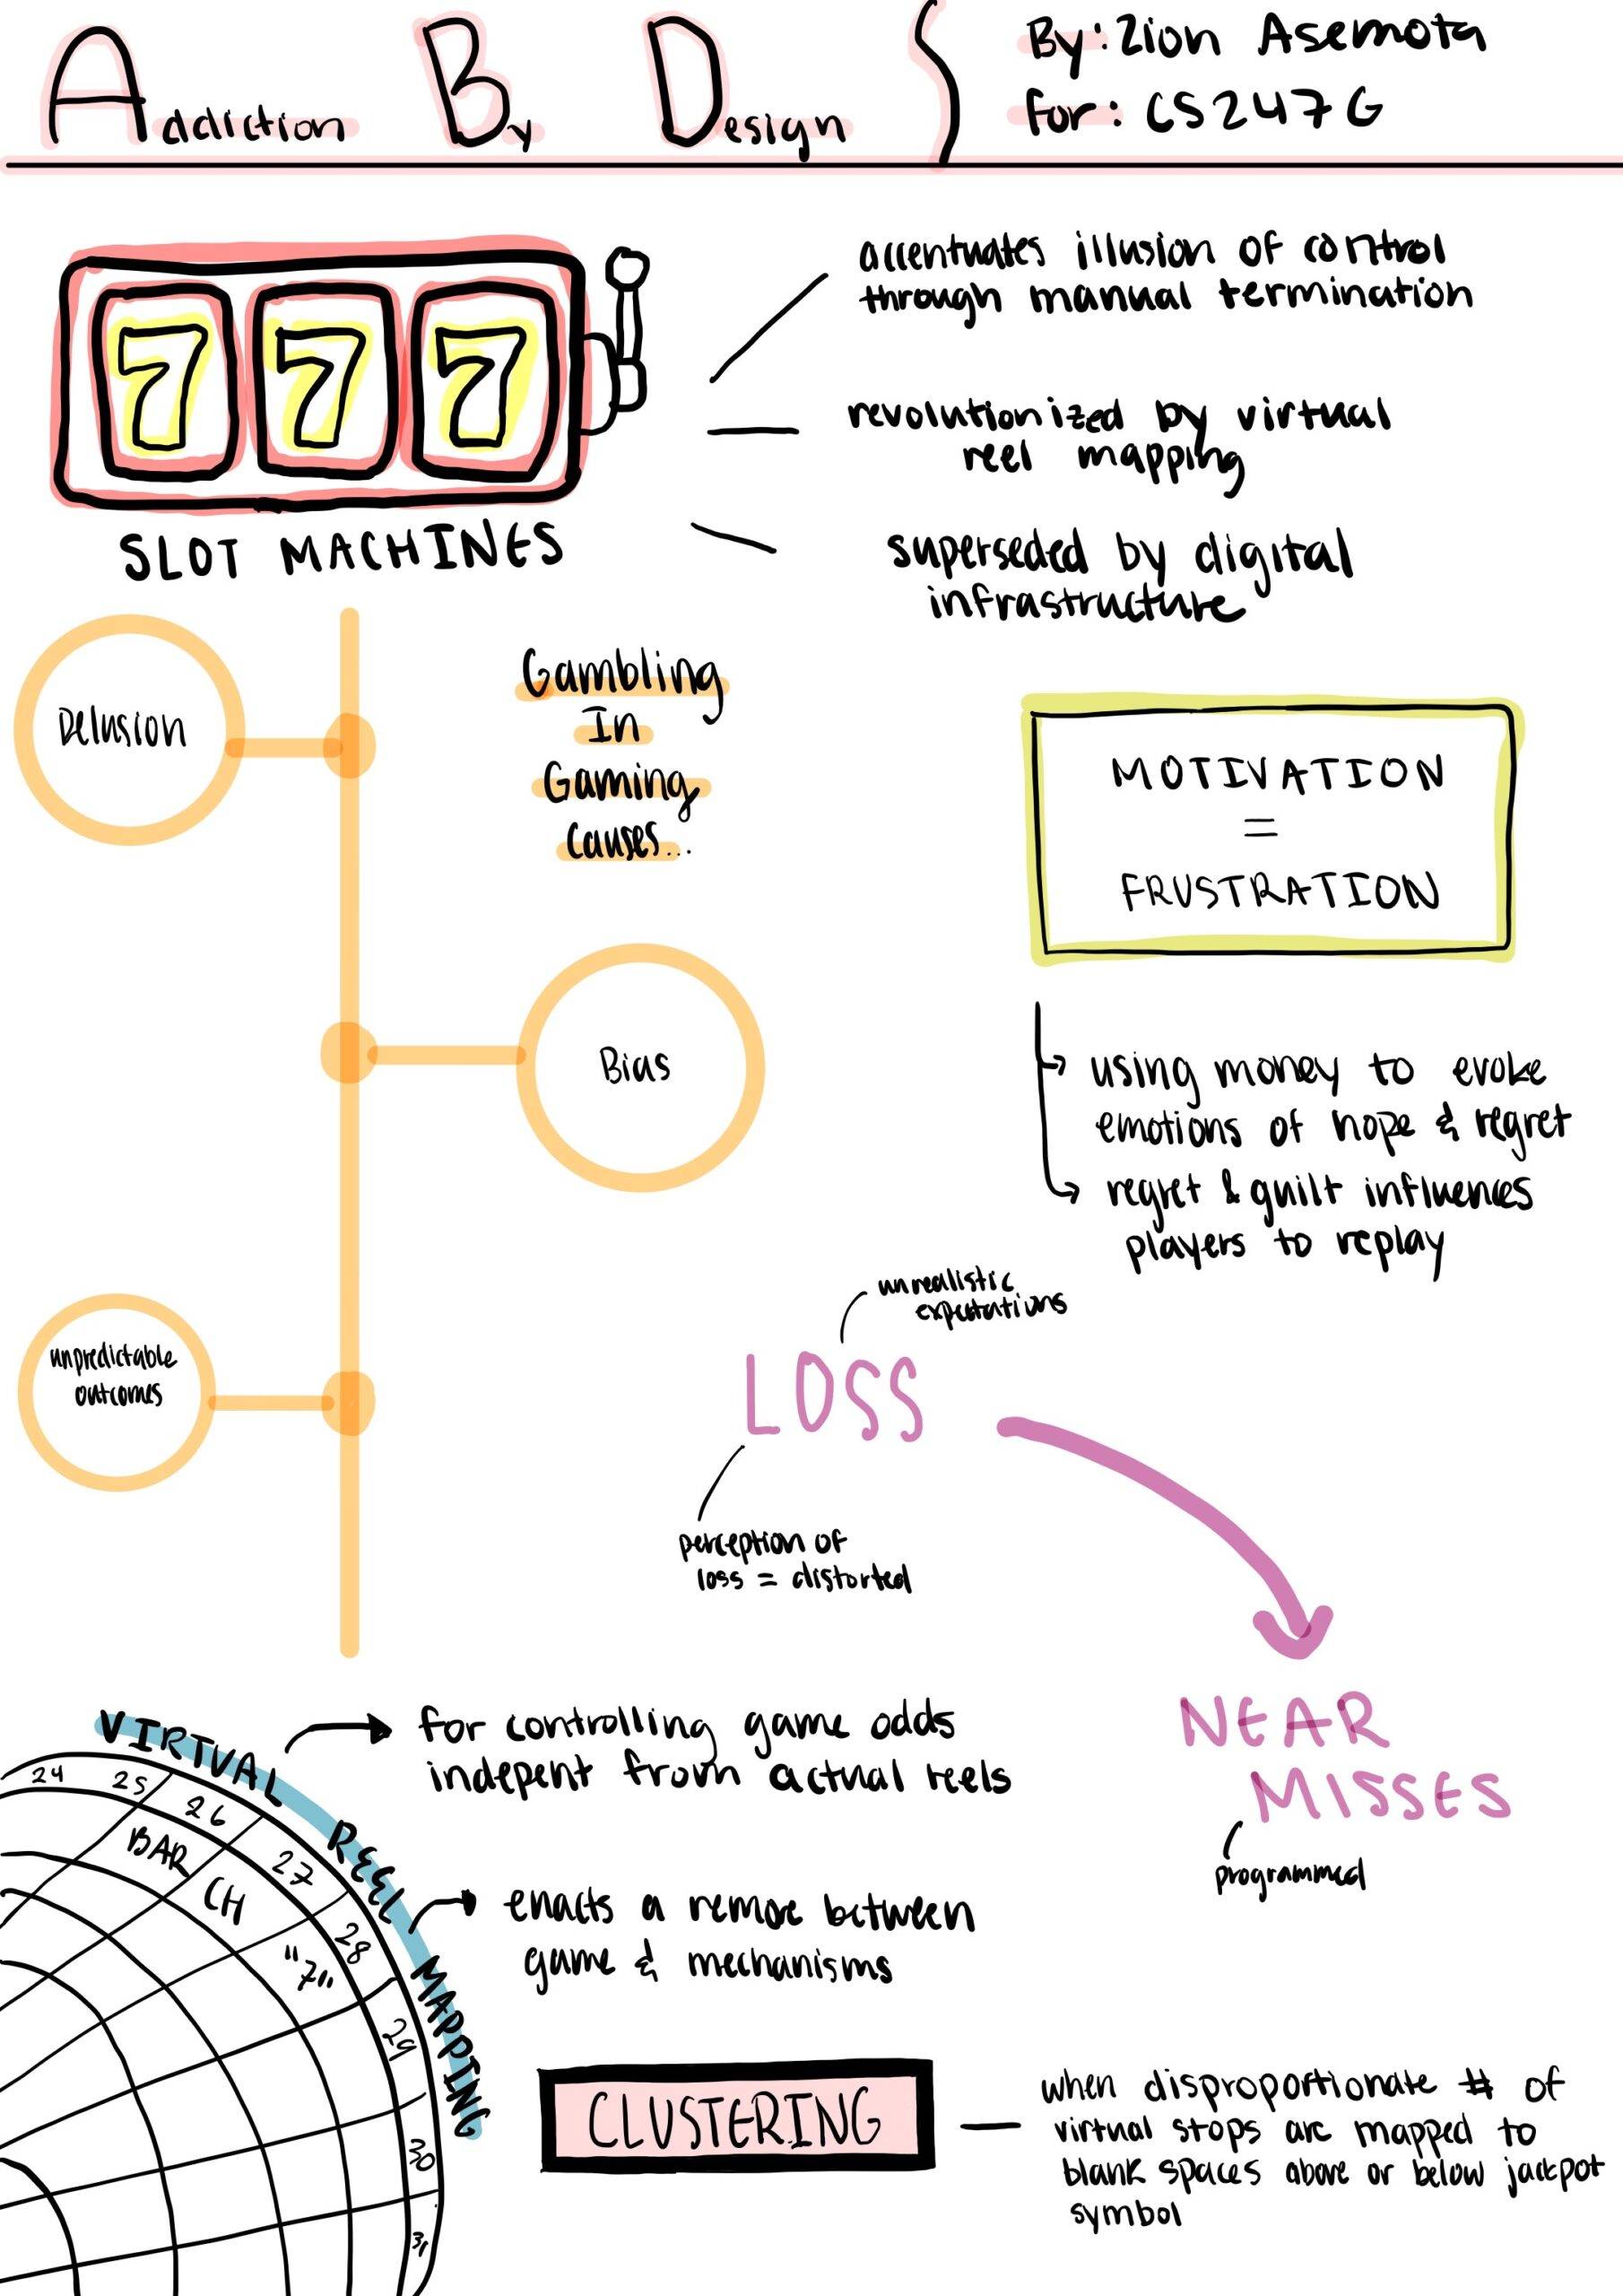 Addiction By Design
By: Zion Asemota
for: CS247G
7 7 7
SLOT MACHINES
accentuates illusion of control
through manual termination
revolutionized by virtual
reel mapping
superseded by digital
infrastructure
Delusion
Gambling
In
Gaming
Causes...
Bias
unpredictable
outcomes
MOTIVATION
=
FRUSTRATION
using money to evoke
emotions of hope & regret
regret & guilt influences
players to replay
unrealistic
expectations
LOSS
perception of
loss = distorted
NEAR
MISSES
programmed
VIRTUAL REEL MAPPING
for controlling game odds
indepent from actual reels
enacts a remove between
game & mechanisms
24 25 26 27 28 29 30 31
BAR
CH
"7"
CLUSTERING
when disproportionate # of
virtual stops are mapped to
blank spaces above or below jackpot
symbol